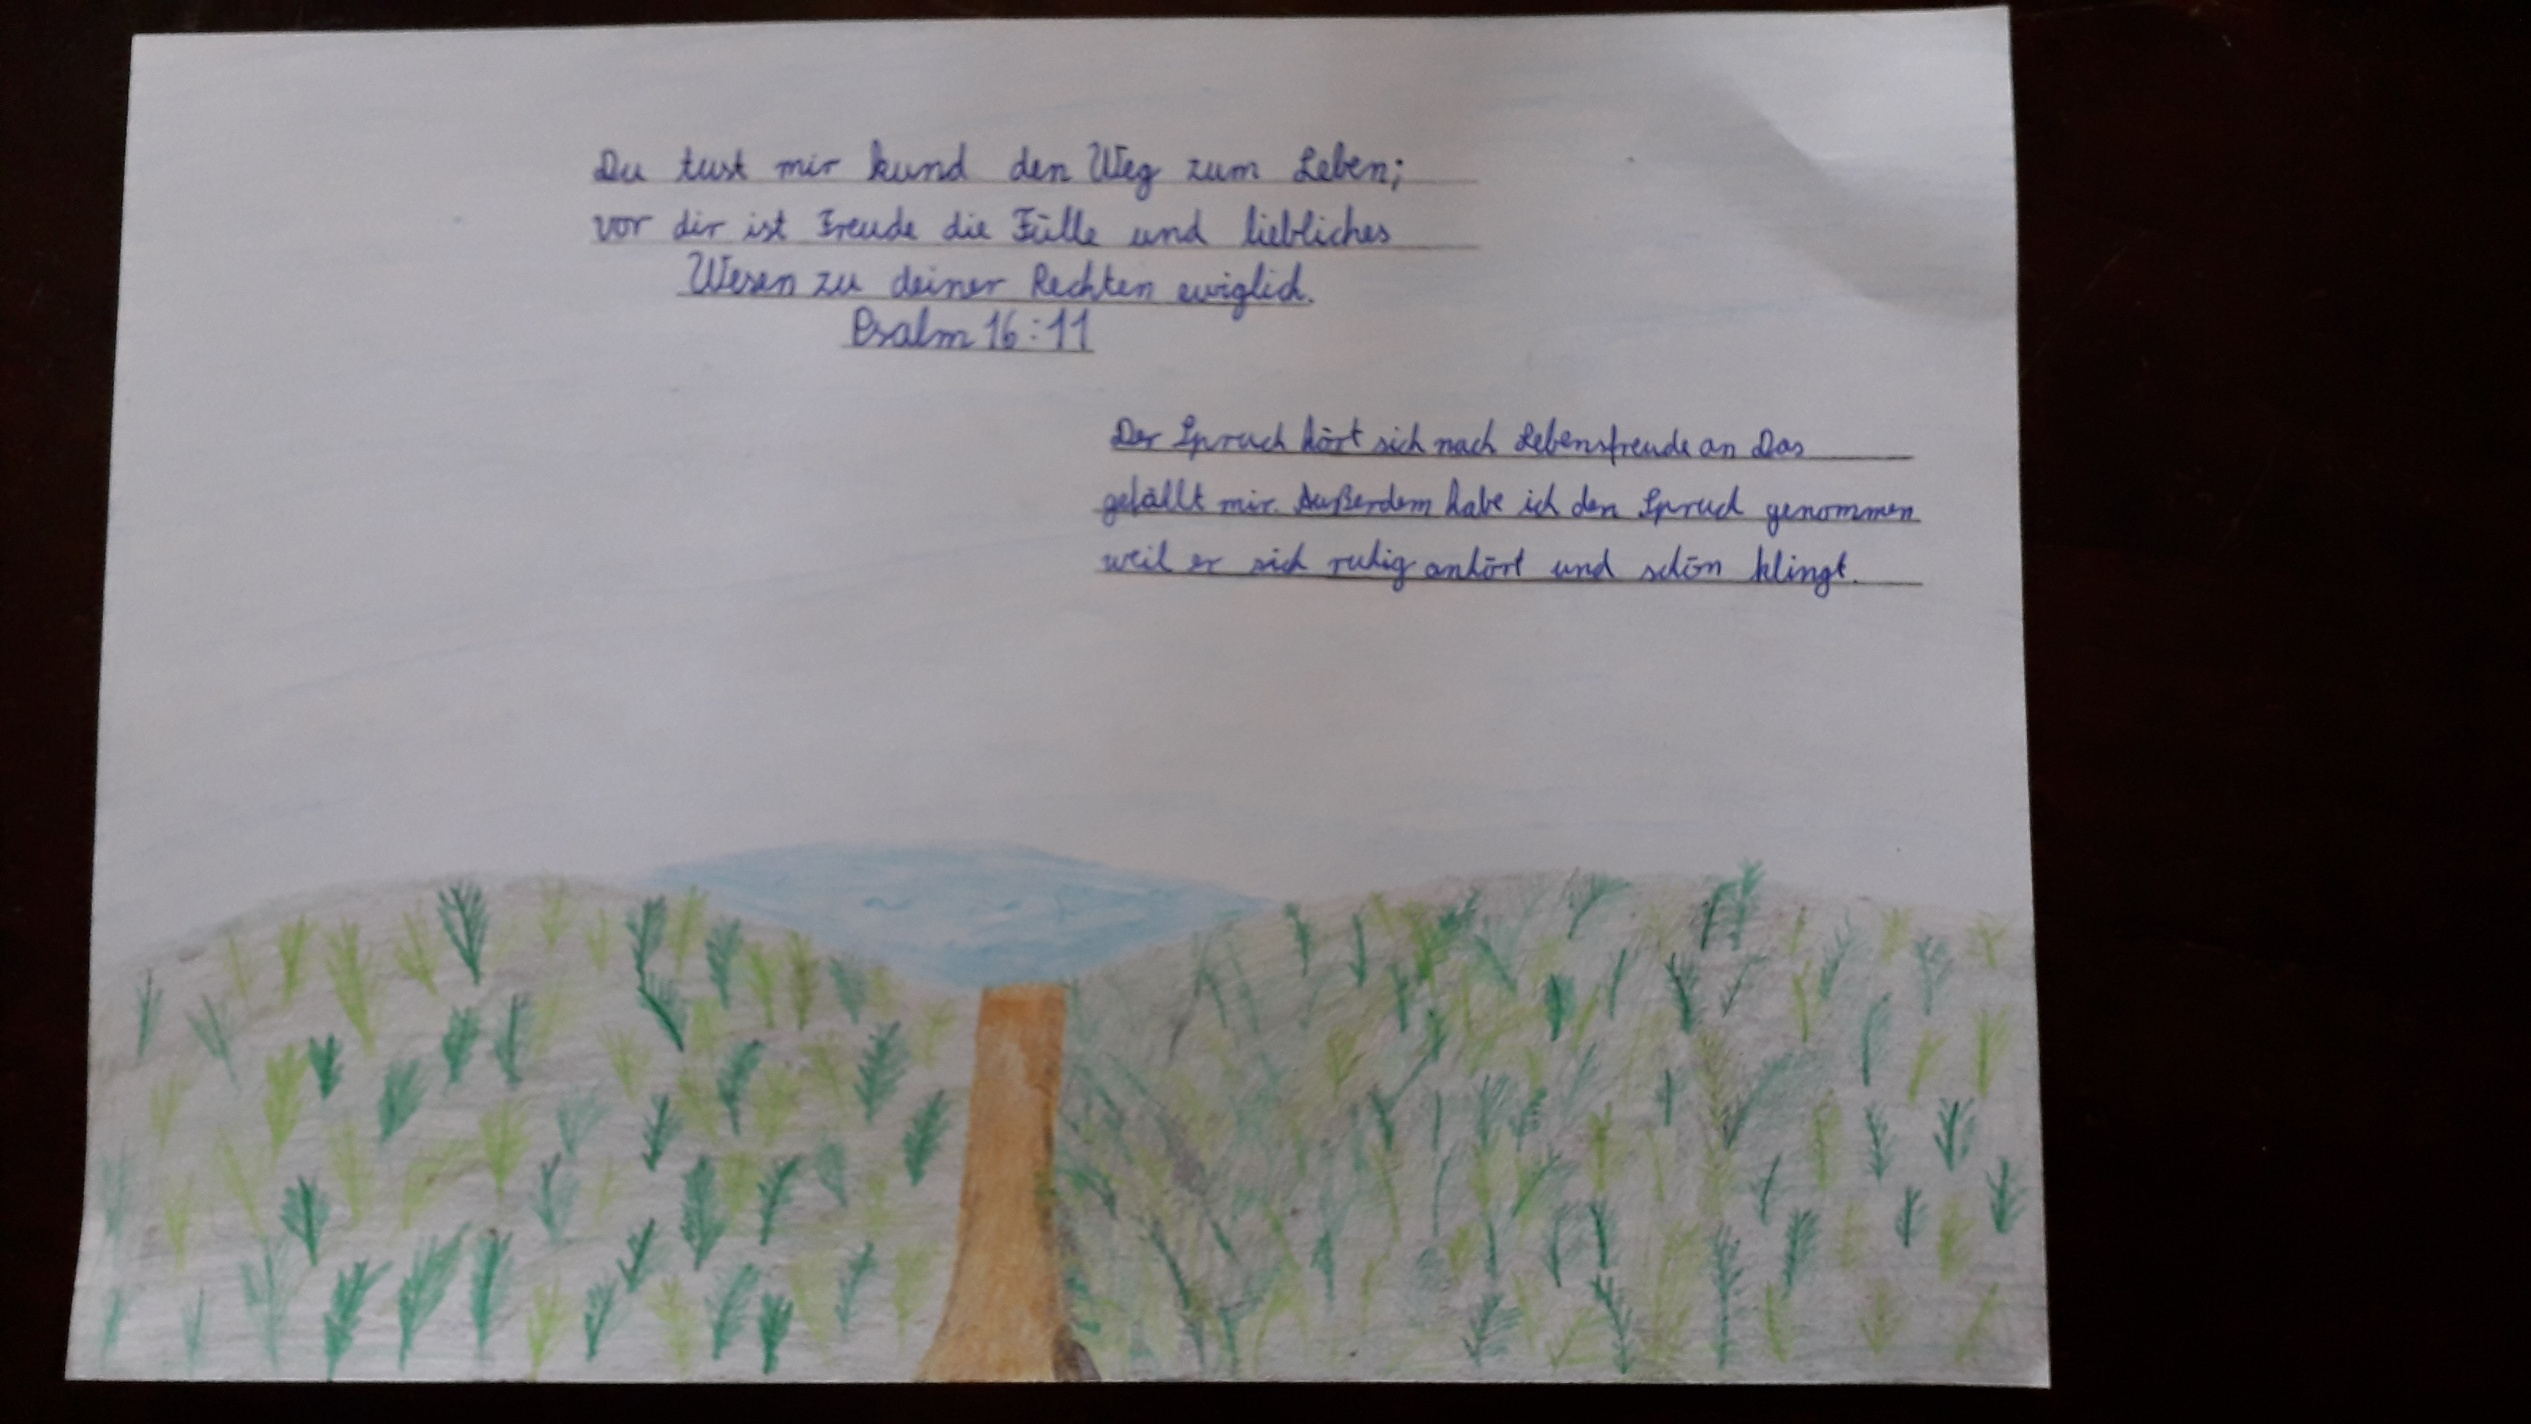 Du tust mir kund den Weg zum Leben;
vor dir ist Freude die Fülle und liebliches
Wesen zu deiner Rechten ewiglich.
Psalm 16:11
Der Spruch hört sich nach Lebensfreude an Das
gefällt mir. Außerdem habe ich den Spruch genommen
weil er sich ruhig anhört und schön klingt.